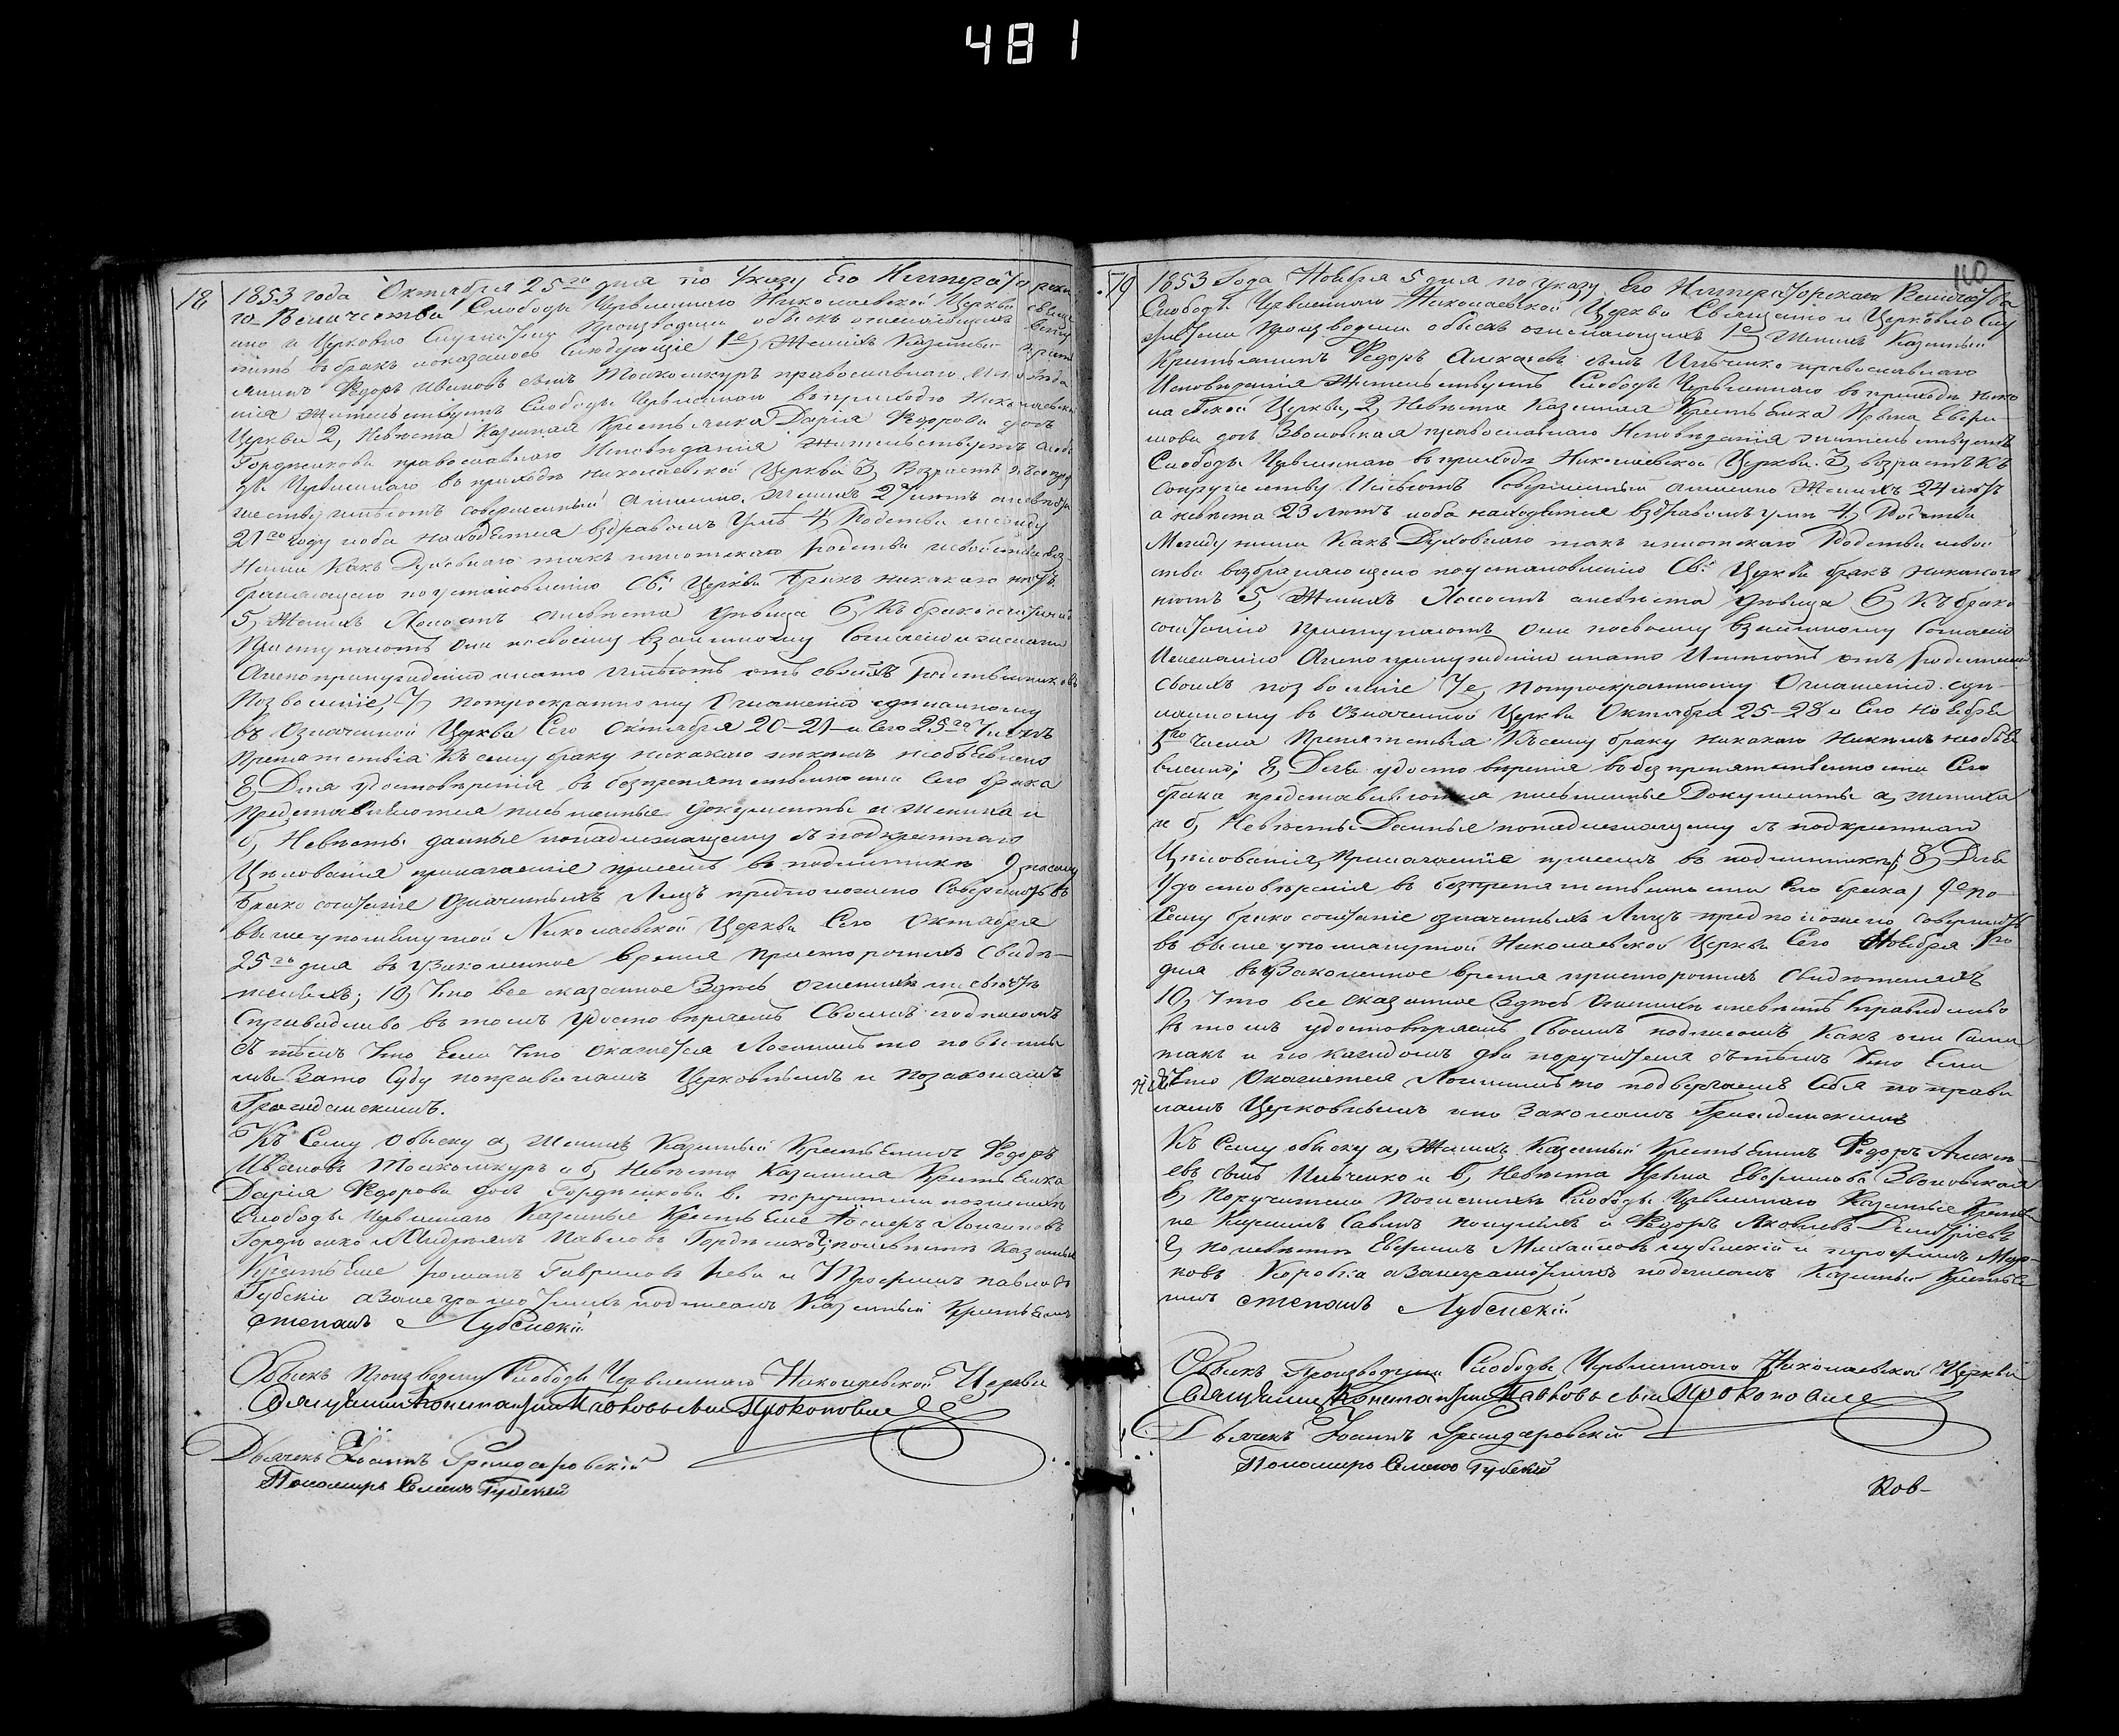 481
18
1853 года Октября 25го дня по Указу Его Императорска
го Величества Слободы Червленнаго Николаевской Церкви свяще
нно и Церковно Служители Производили обыскъ о желающихъ всту
пить въ бракъ и оказалось Следующие 1е Женихъ Казенный крестья
нинъ Федоръ Ивановъ сынъ Толкошкуръ православнаго Исповѣда
нія жительствуетъ Слободы Червленнаго въ приходѣ Николаевской
Церкви 2, Невѣста Казенная Крестьянка Дарія Федорова дочь
Гордѣенкова православнаго Исповѣданія жительствуетъ Слобо
ды Червленнаго въ приходѣ Николаевской Церкви 3, Возрастъ къ супру
жеству имѣютъ совершенный а именно Женихъ лѣтъ а невѣста
21го году и оба находятся въ здравомъ Умѣ 4, Родства между
Ними Какъ Духовнаго такъ и плотскаго Родства и свойства воз
браняющаго по установленію Св: Церкви Бракъ никакаго нѣтъ
5, Женихъ Холостъ а невѣста дѣвица 6, Къ бракосочетанію
Приступаютъ Они по своему взаимному Согласію и желанію
А не по принужденію и на то имѣютъ отъ своихъ Родственниковъ
Позволеніе, 7, по троекратному Оглашенію сдѣланному
въ Означенной Церкви Сего Октября 20-21-и Сего 25го Числъ
Препятствія къ сему браку никакаго никѣмъ необъявлено
8, Для удостовѣренія въ безпрепятственности Сего брака
Представляются письменные документы а, жениха и
б, Невѣсты данные по надлежащему съ подкрестнаго
Цѣлованія прилагаеніе при семъ въ подлинникѣ 9, по сему
Бракосочетаніе Означенныхъ Лицъ предположено Совершить въ
выше упомянутой Николаевской Церкви Сего Октября
25го дня въ узаконенное время при стороннихъ Свидѣ-
теляхъ; 10, Что все сказанное Здѣсь о женихѣ и невѣстѣ
Справедливо въ томъ удостовѣряемъ Своимъ подписомъ
съ тѣмъ Что Если Что окажется Ложнымъ то повинны
мы Зато Суду по правиламъ Церковнымъ и По законамъ
Гражданскимъ.
Къ Сему Обыску а, Женихъ Казенный Крестьянинъ Федоръ
Ивановъ Толкошкуръ и б, Невѣста Казенная Крестьянка
Дарія Федорова дочь Гордѣенкова в. поручители по женихѣ
Слободы Червленнаго Казенные Крестьяне Лонгиновъ
Гордѣенко и Андреянъ Павловъ Гордѣенко; по невѣстѣ Казенные
Крестьяне Романъ Гавриловъ Рева и Трофимъ Павловъ
Губскій а За неграмотныхъ подписалъ Казенный Крестьянинъ
Степанъ Лубенскій
Обыскъ Производилъ Слободы Червленнаго Николаевской Церкви
Священникъ Константинъ Павловъ сынъ Прокоповичъ
Дьячекъ Іоаннъ
Пономарь Семенъ Губскій
19
110
1853 Года Ноября 5 дня по указу Его Императорскаго Величества
Слободы Червленнаго Николаевской Церкви Священно и Церковно Слу
жители Производили обыскъ о желающихъ 1е Женихъ Казенный
Крестьянинъ Федоръ Алексѣевъ сынъ Ильченко православнаго
Исповѣданія Жительствуетъ Слободы Червленнаго въ приходѣ Нико
лаевской Церкви, 2, Невѣста Казенная Крестьянка Ирина Евфи
мова дочь Звоновская православнаго Исповѣданія жительствуетъ
Слободы Червленнаго въ приходѣ Николаевской Церкви. 3, возрастъ къ
Супружеству Имѣютъ Совершенный а именно Женихъ 24 лѣтъ
а невѣста 23 лѣтъ и оба находятся въ здравомъ умѣ 4, Родства
Между ними Какъ Духовнаго такъ и плотскаго Родства и свой
ства возбраняющаго по установленію Св: Церкви бракъ никакого
нѣтъ 5, Женихъ Холостъ а невѣста дѣвица 6, Къ брако
сочетанію Приступаютъ Они по своему взаимному Согласію
И желанію А не по принужденію и на то Имѣютъ отъ Родителей
своихъ позволеніе 7е, по троекратному Оглашенію сдѣ-
ланному въ Означенной Церкви Октября 25-28 и Сего Ноября
1го Числа Препятствія Къ сему браку никакого Никѣмъ необъя
влено; 8, Для удостовѣренія въ безпрепятственности Сего
брака представляются письменные Документы а, жениха
и б, Невѣсты Данные по надлежащему съ подкрестнаго
Цѣлованія, Прилагаеніе при семъ въ подлинникѣ; 8, Для
Удостовѣренія въ безпрепятственности Сего брака, 9е по
Сему бракосочетаніе означенныхъ Лицъ предположено совершить
въ выше упомянутой Николаевской Церкви Сего Ноября 5го
дня въ Узаконенное время при стороннихъ Свидѣтеляхъ
10, Что все сказанное Здѣсь О женихѣ и невѣстѣ Справедливо
въ томъ удостовѣряемъ Своимъ подписомъ Какъ они Сами
такъ и по каждомъ два поручителя съ тѣмъ Что Если
Что Окажется Ложнымъ то подвергаемъ Себя по прави
ламъ Церковнымъ и по Законамъ Гражданскимъ
Къ Сему обыску а, Женихъ Казенный Крестьянинъ Федоръ Алексѣ-
евъ сынъ Ильченко и б, Невѣста Ирина Евфимова Звоновская
в, Поручители По женихѣ Слободы Червленнаго Казенные Крестья
не Савинъ и Федоръ Яковлевъ Дмитріевъ
г, по невѣстѣ Евфимъ Михайловъ Лубенскій и Трофимъ Мар-
ковъ Коробка а За неграмотныхъ подписалъ Казенный Крестья
нинъ Степанъ Лубенскій
Обыскъ Производили Слободы Червленнаго Николаевской Церкви
Священникъ Константинъ Павловъ сынъ Прокоповичъ
Дьячекъ Іоаннъ
Пономарь Семенъ Губскій
Ков-